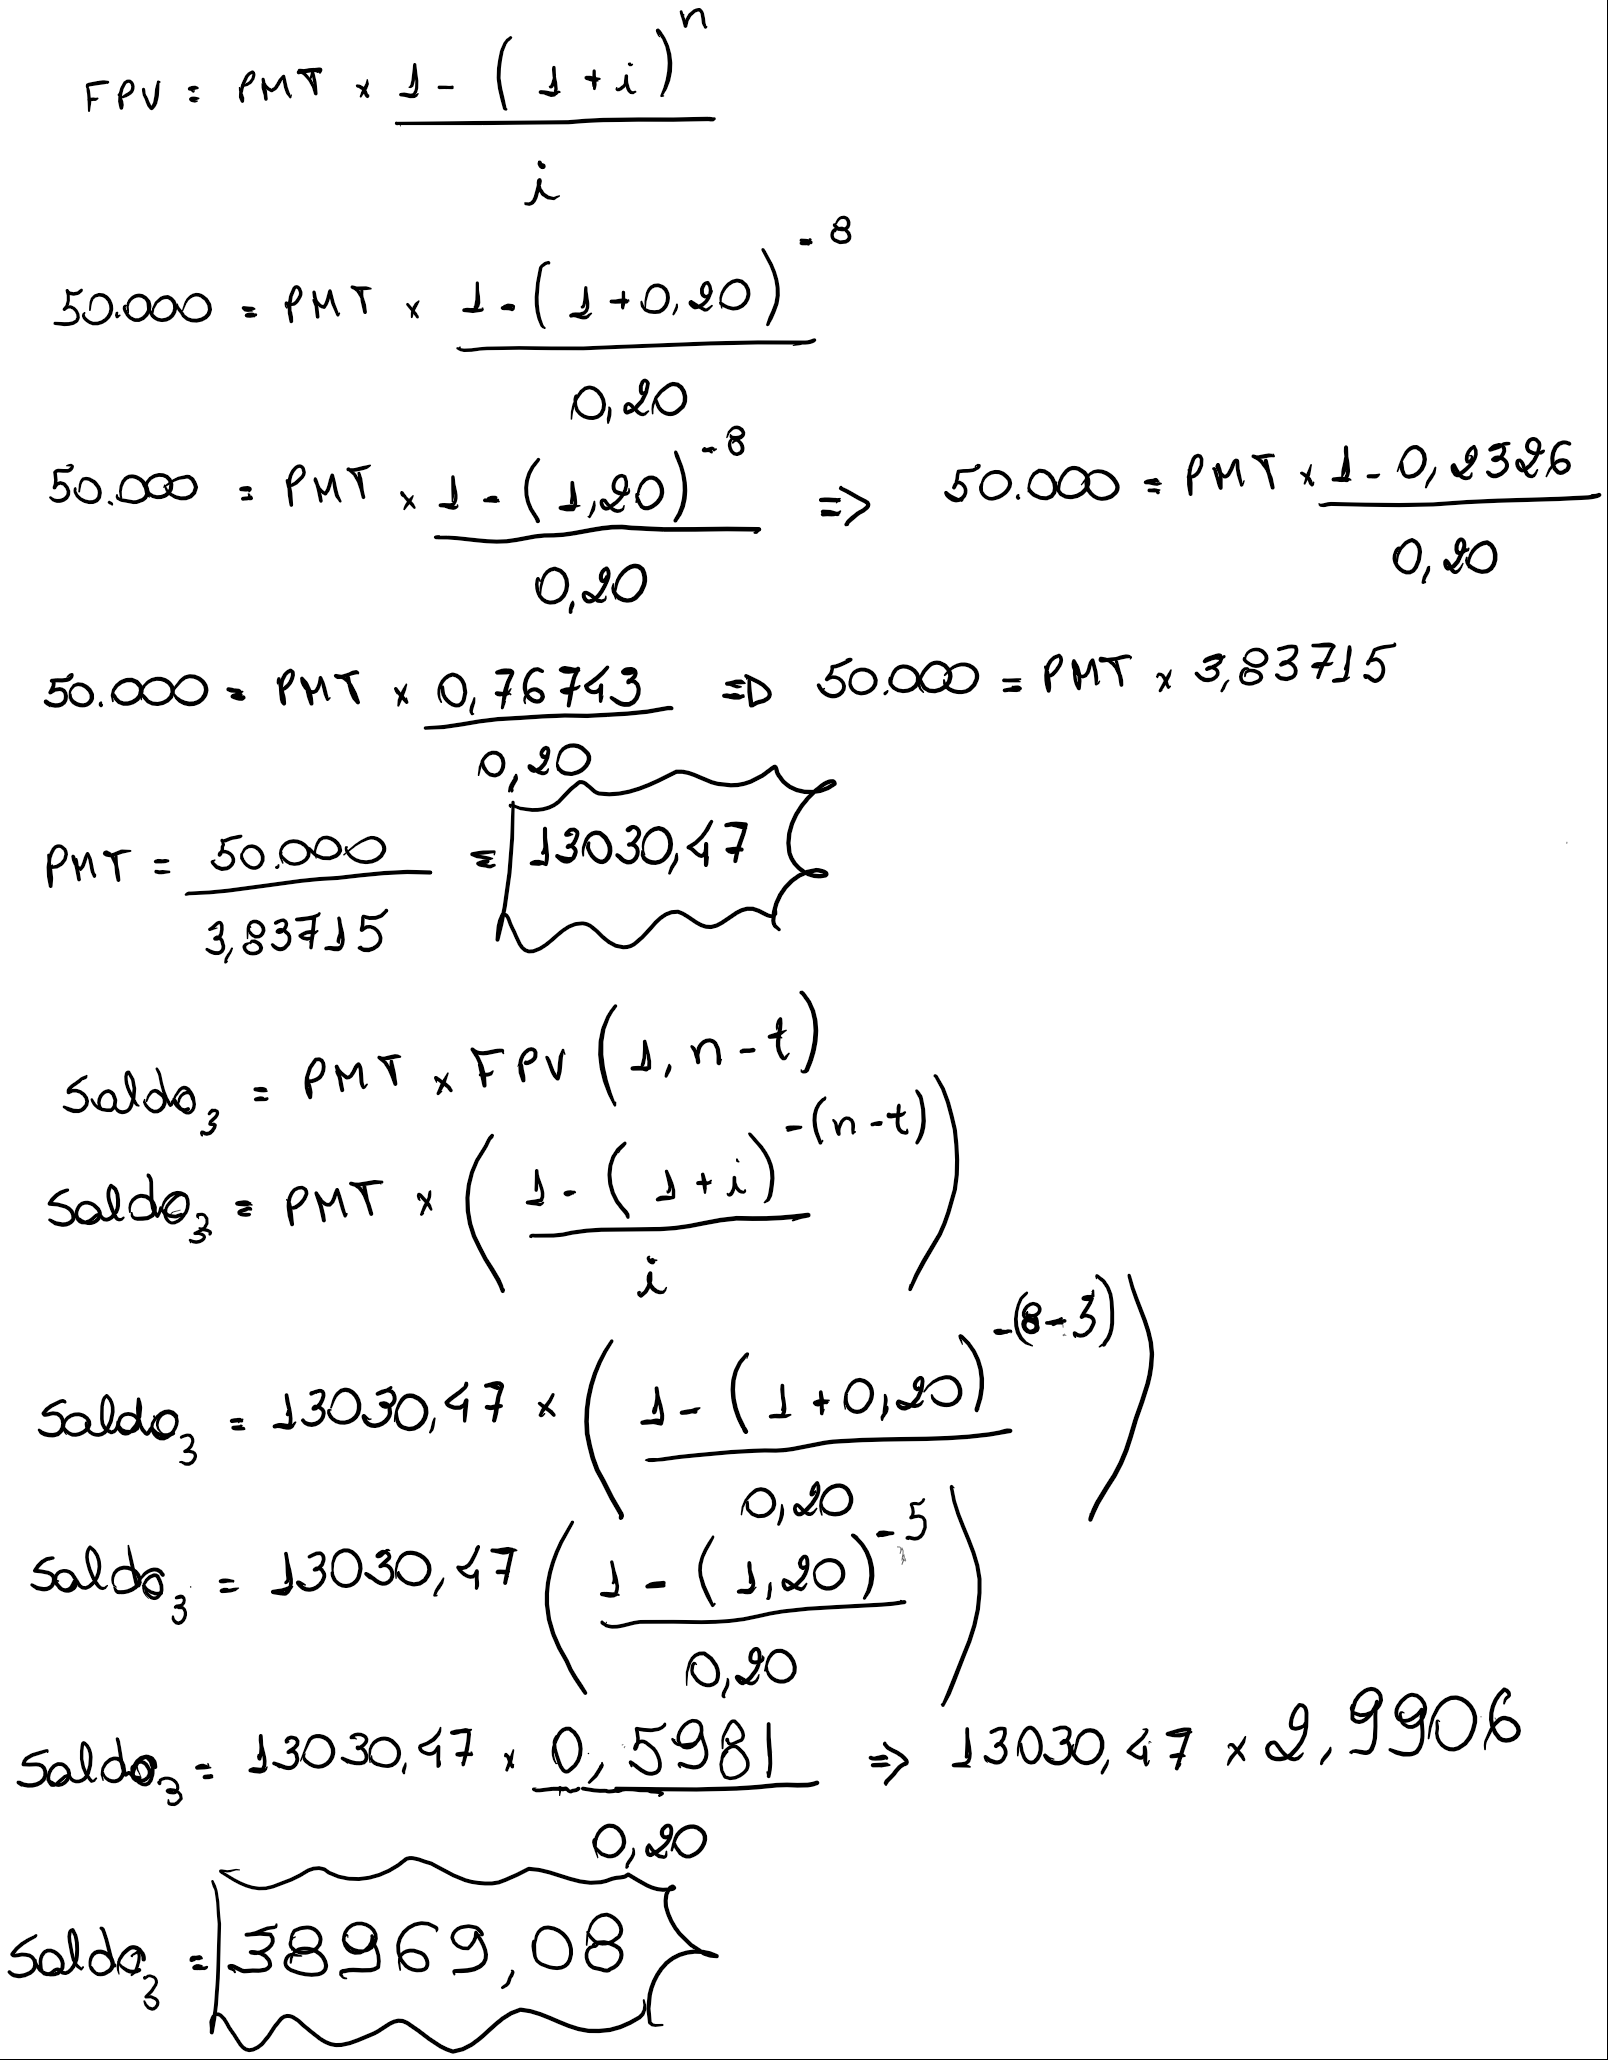 FPV = PMT × 1 - (1 + i)^n / i
50.000 = PMT × 1 - (1 + 0,20)^-8 / 0,20
50.000 = PMT × 1 - (1,20)^-8 / 0,20 => 50.000 = PMT × 1 - 0,2326 / 0,20
50.000 = PMT × 0,76743 / 0,20 => 50.000 = PMT × 3,83715
PMT = 50.000 / 3,83715 = 13030,47
Saldo₃ = PMT × FPV (1, n - t)
Saldo₃ = PMT × (1 - (1 + i)^-(n - t) / i)
Saldo₃ = 13030,47 × (1 - (1 + 0,20)^-(8 - 3) / 0,20)
Saldo₃ = 13030,47 (1 - (1,20)^-5 / 0,20)
Saldo₃ = 13030,47 × 0,5981 / 0,20 => 13030,47 × 2,9906
Saldo₃ = 38969,08